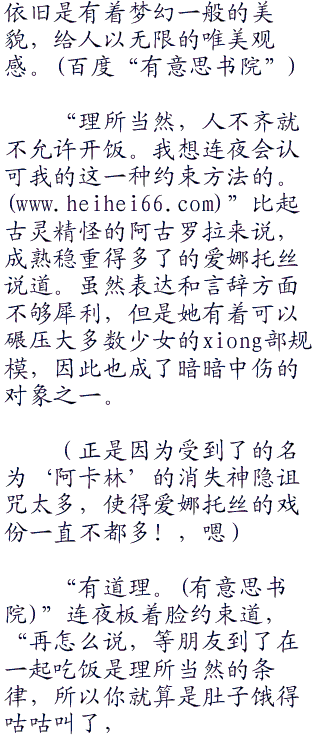 依旧是有着梦幻一般的美
貌，给人以无限的唯美观
感。(百度“有意思书院”)
“理所当然，人不齐就
不允许开饭。我想连夜会认
可我的这一种约束方法的。
(www.heihei66.com)”比起
古灵精怪的阿古罗拉来说，
成熟稳重得多了的爱娜托丝
说道。虽然表达和言辞方面
不够犀利，但是她有着可以
碾压大多数少女的xiong部规
模，因此也成了暗暗中伤的
对象之一。
（正是因为受到了的名
为‘阿卡林’的消失神隐诅
咒太多，使得爱娜托丝的戏
份一直不都多！，嗯）
“有道理。(有意思书
院)”连夜板着脸约束道，
“再怎么说，等朋友到了在
一起吃饭是理所当然的条
律，所以你就算是肚子饿得
咕咕叫了，